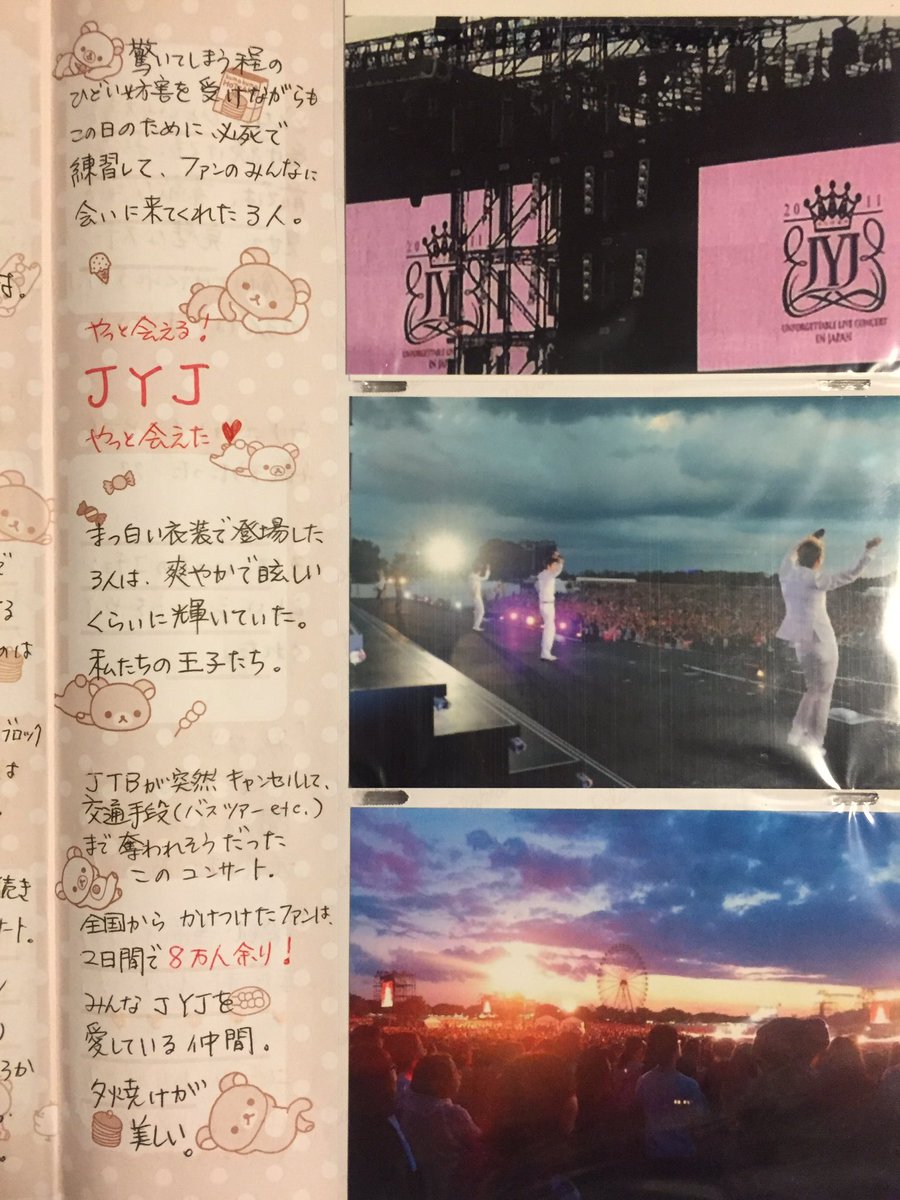 驚いてしまう程の
ひどい妨害を受けながらも
この日のために必死で
練習して、ファンのみんなに
会いに来てくれた3人。
やっと会える!
JYJ
やっと会えた
まっ白い衣装で登場した
3人は、爽やかで眩しい
くらいに輝いていた。
私たちの王子たち。
JTBが突然キャンセルして、
交通手段(バスツアーetc.)
まで奪われそうだった
このコンサート。
全国からかけつけたファンは、
2日間で8万人余り!
みんなJYJを
愛している仲間。
夕焼けが
美しい。
は。
る
のは
ブロック
は
続き
ート。
ろか
2011
JYJ
UNFORGETTABLE LIVE
IN JAPAN
2011
JYJ
UNFORGETTABLE LIVE CONCERT
IN JAPAN